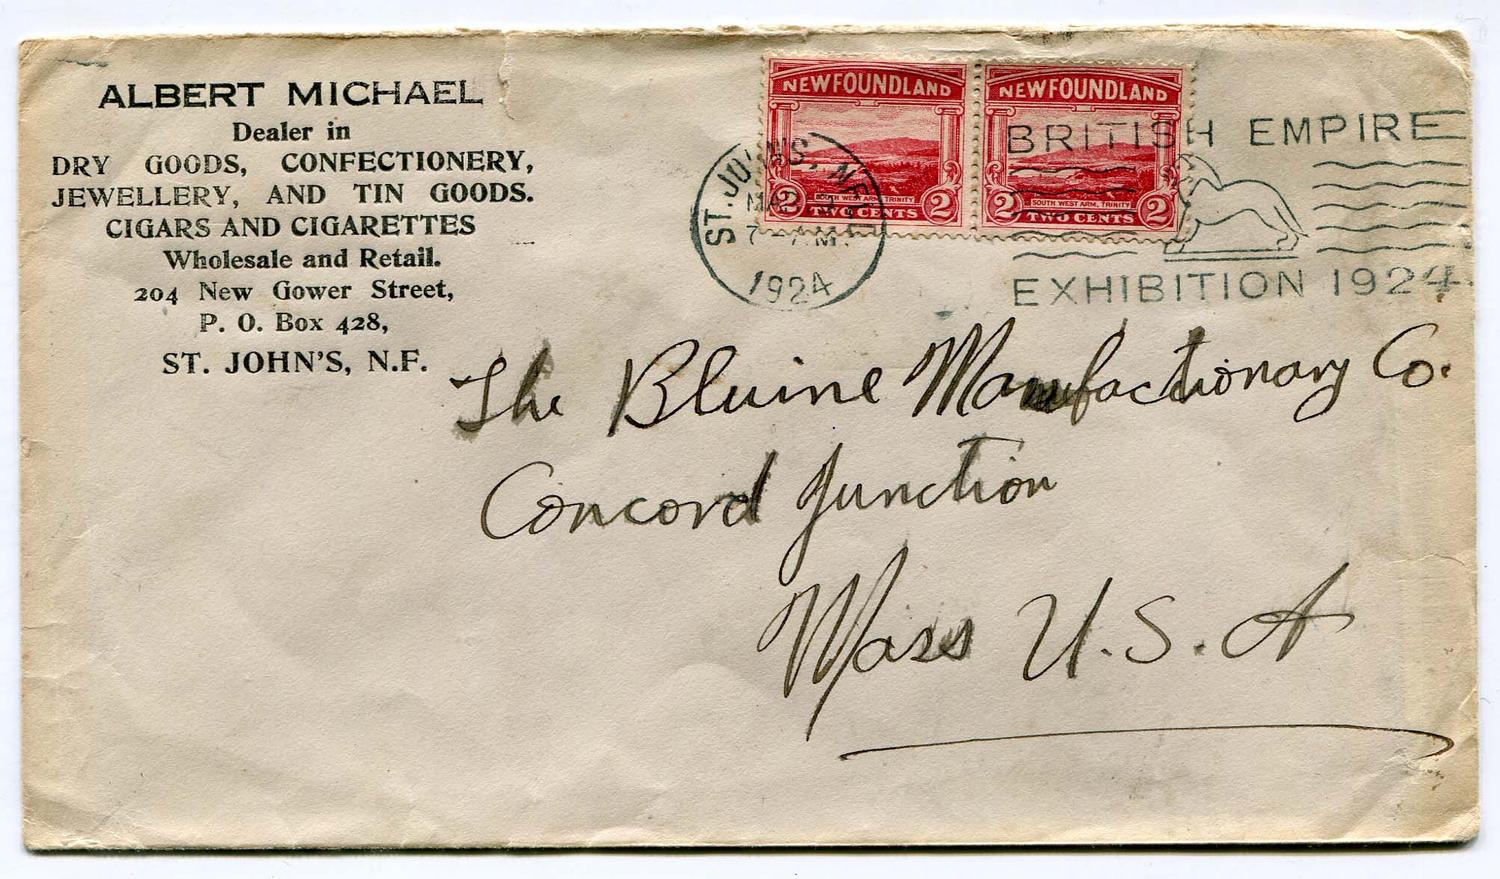 ALBERT MICHAEL
Dealer in
DRY GOODS, CONFECTIONERY,
JEWELLERY, AND TIN GOODS.
CIGARS AND CIGARETTES
Wholesale and Retail.
204 New Gower Street,
P. O. Box 428,
ST. JOHN'S, N.F.
NEWFOUNDLAND
2 SOUTH WEST ARM, TRINITY 2
TWO CENTS
NEWFOUNDLAND
2 SOUTH WEST ARM, TRINITY 2
TWO CENTS
ST. JOHN'S, N.F.
1924
BRITISH EMPIRE
EXHIBITION 1924
The Bluine Manufactionary Co.
Concord Junction
Mass U.S.A